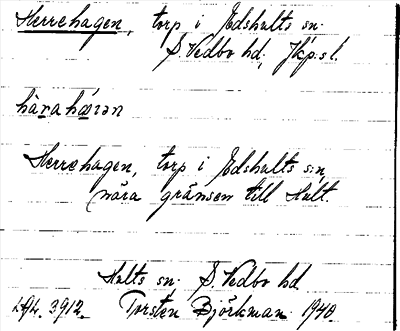 Herrehagen, torp i Edshults sn.
S. Vedbo hd., Jkp:s l.
Herrehagen, torp i Edshults s:n,
nära gränsen till Hult.
Hults sn. S. Vedbo hd
3912. Torsten Björkman 1940.